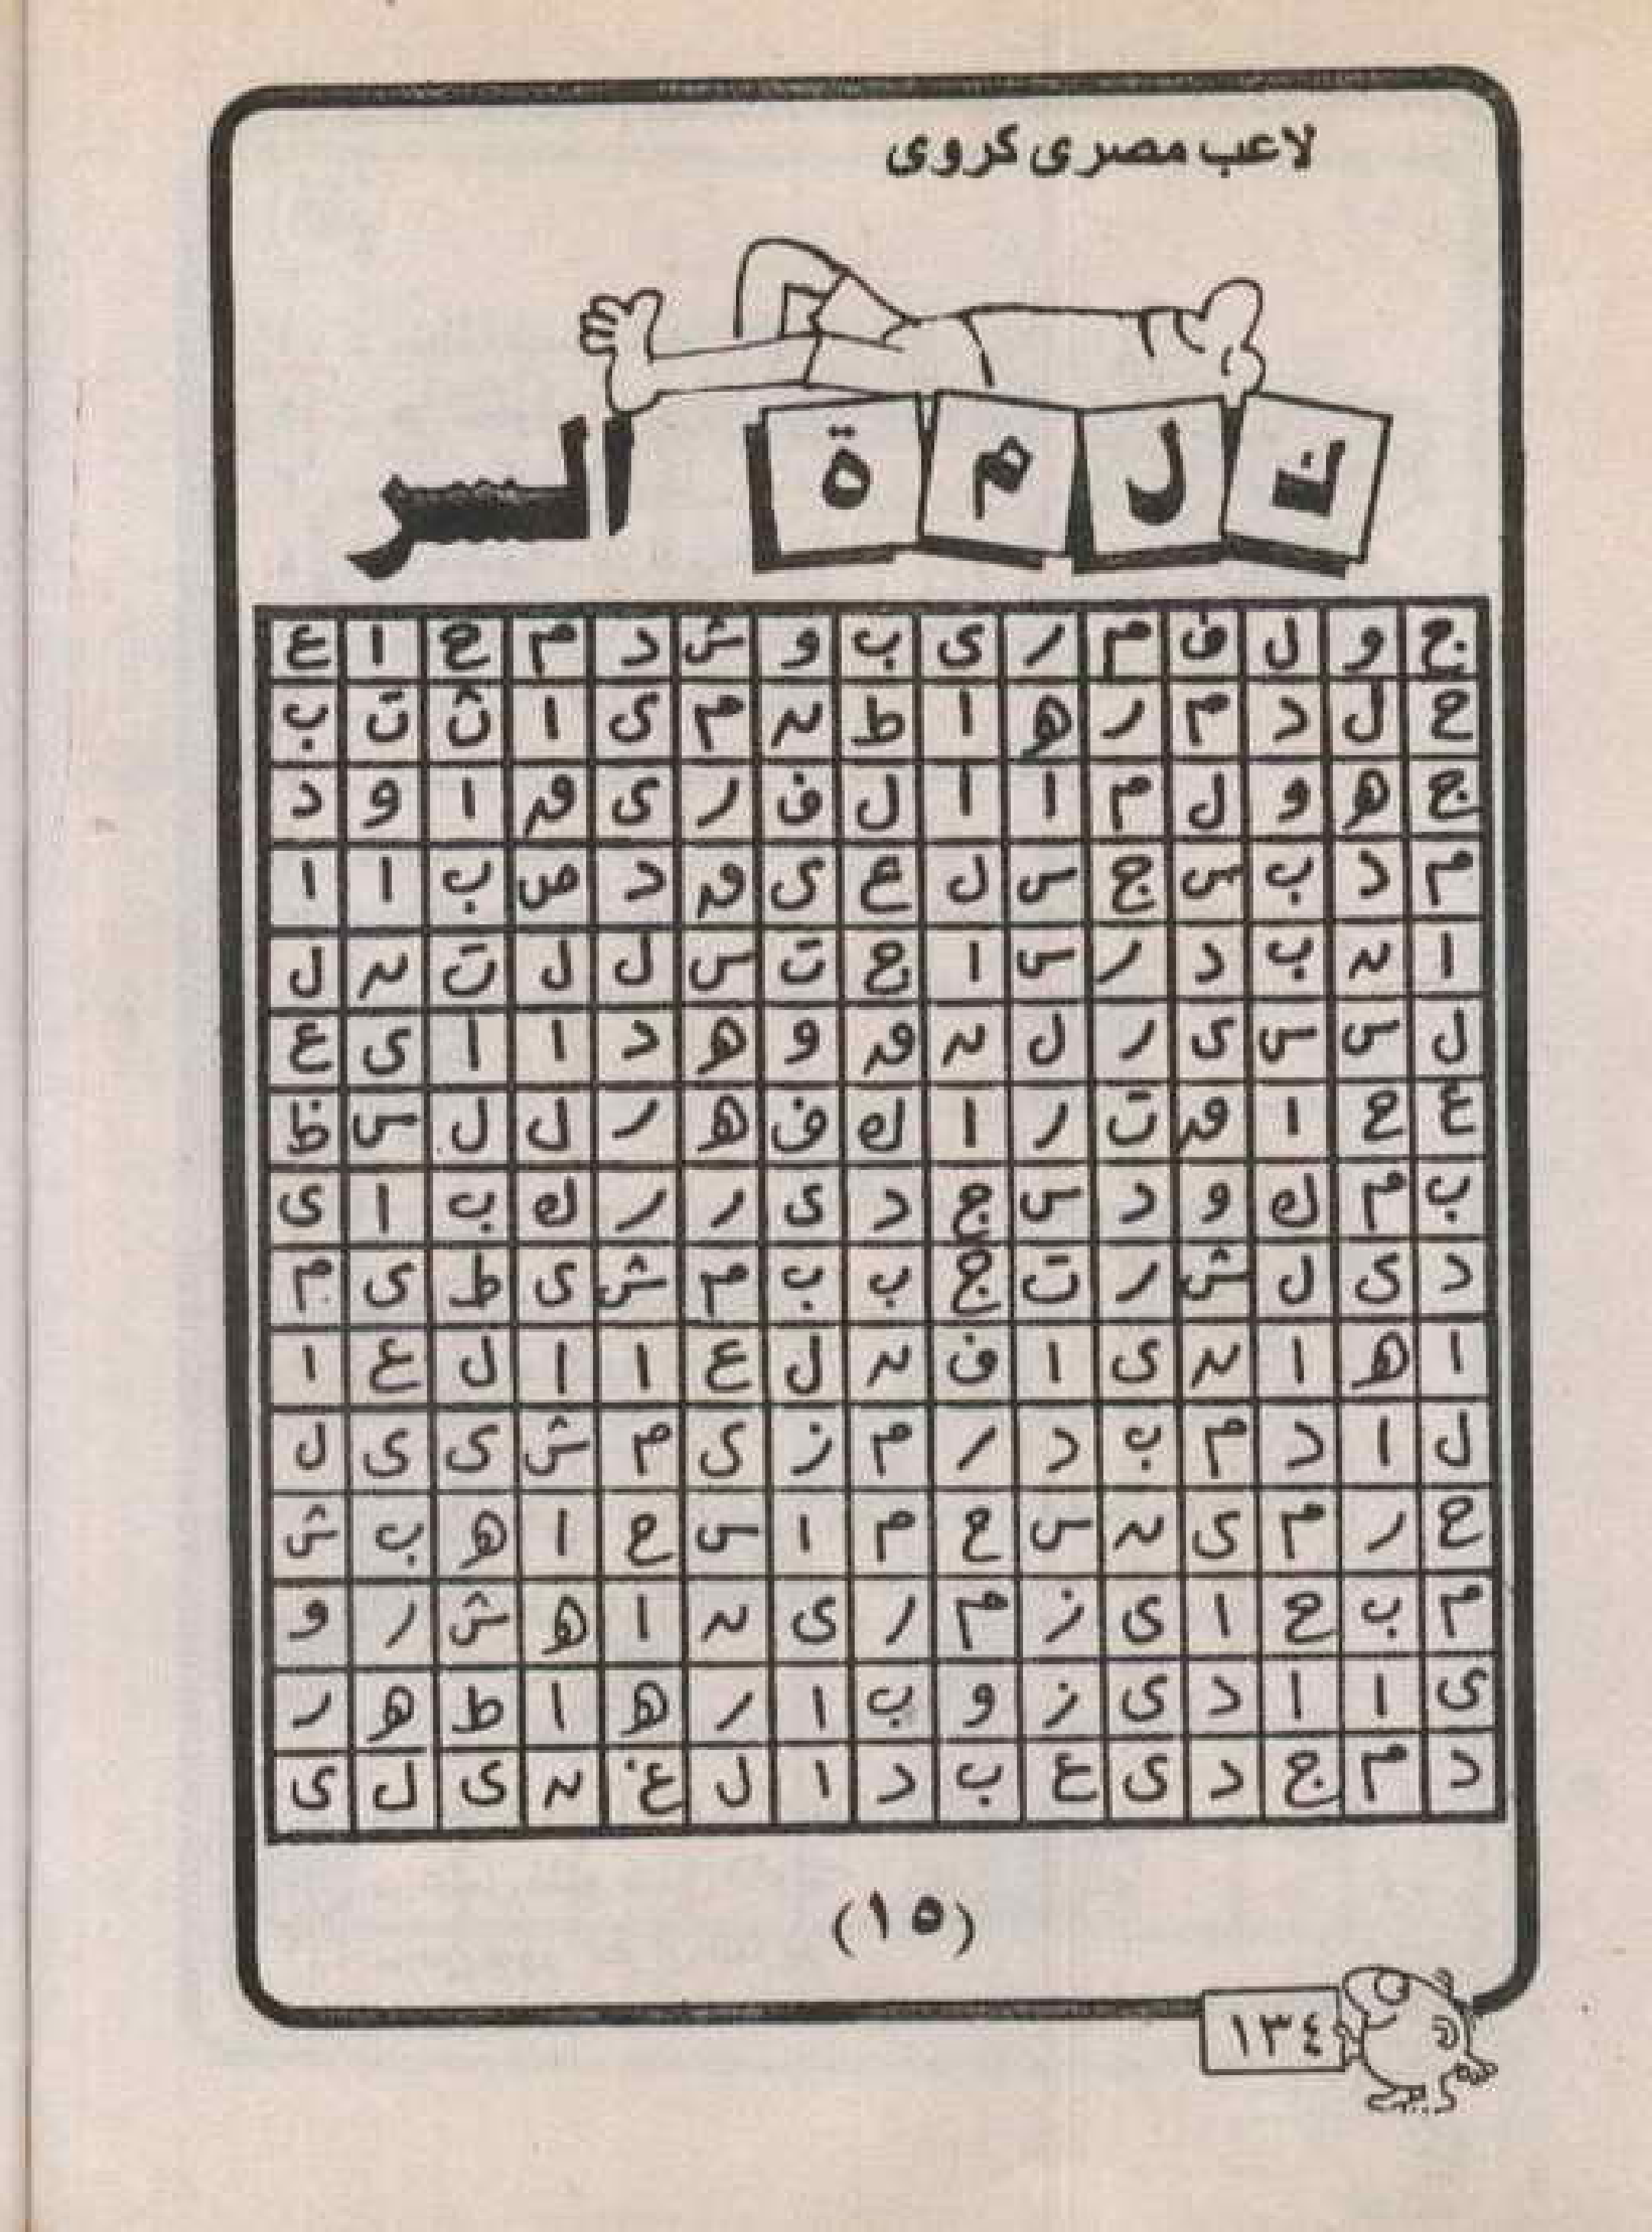 لاعب مصرى كروى
كلمة السر
ج و ل ف م ر ى ب و ش د م ح ا ع
ح ل د م ر ه ا ط ن م ى ا ث ت ب
ج ه و ل م ا ا ل ف ر ى ق ا و د
م د ب س ج س ل ع ى ق د ص ب ا ا
ا ن ب د ر س ا ح ت س ل ل ت ن ل
ل س س ى ر ل ن ق و ه د ا ا ى ع
ع ح ا ق ت ر ا ك ف ه ر ل ل س ظ
ب م ك و د س ج د ى ر ر ك ب ا ى
د ى ل ش ر ت ج ب ب م ش ى ط ى م
ا ه ا ن ى ا ف ن ل ع ا ا ل ع ا
ل ا د م ب د ر م ز ى م ش ى ى ل
ح ر م ى ن س ح م ا س ح ا ه ب ش
م ب ح ا ى ز م ر ى ن ا ه ش ر و
ى ا ا د ى ز و ب ا ر ه ا ط ه ر
د م ج د ى ع ب د ا ل غ ن ى ل ى
(١٥)
١٣٤